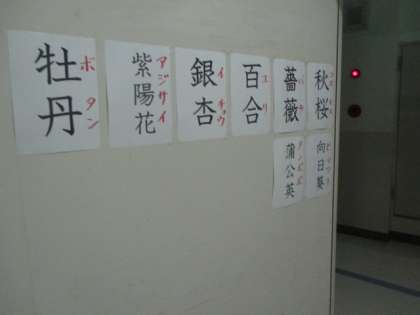 秋桜
薔薇
バラ
百合
ユリ
銀杏
イチョウ
紫陽花
アジサイ
牡丹
ボタン
向日葵
ヒマワリ
蒲公英
タンポポ